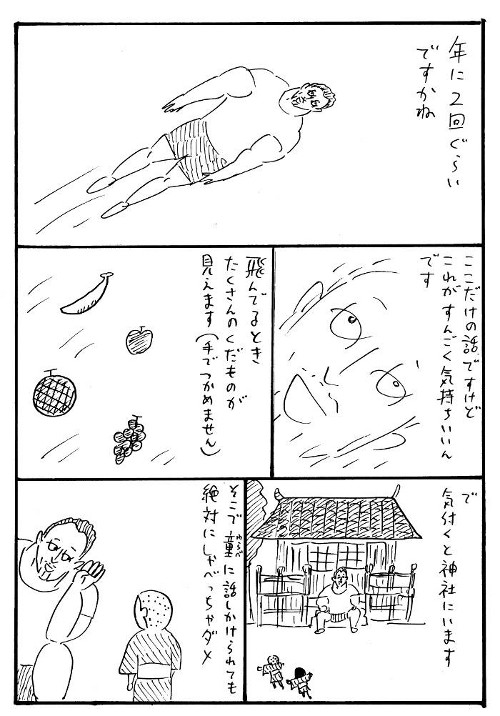 年に2回ぐらい
ですかね
ここだけの話ですけど
これがすんごく気持ちいいん
です
飛んでるとき
たくさんのくだものが
見えます(手でつかめません)
で
気付くと神社にいます
そこで童に話しかけられても
わらべ
絶対にしゃべっちゃダメ